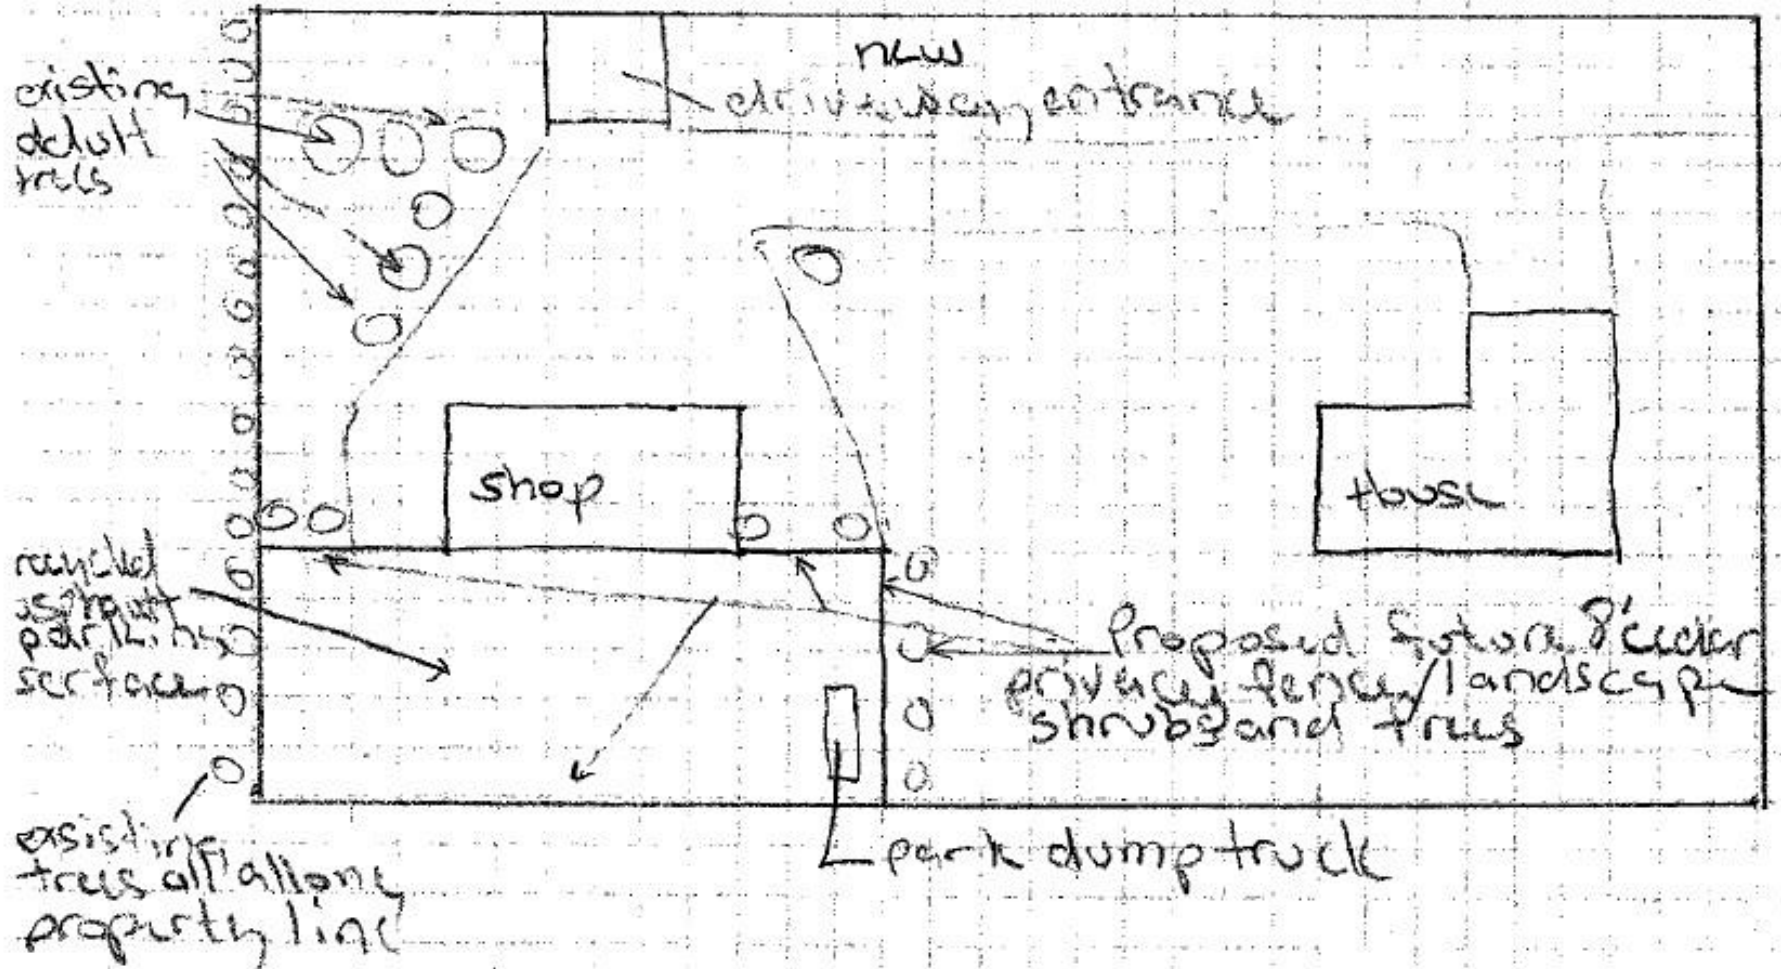 new
driveway entrance
existing
adult
trees
shop
House
recycled
asphalt
parking
serface
Proposed future 8' ceder
privacy fence/landscape
shrubs and trees
park dump truck
exsisting
trees all allong
property line